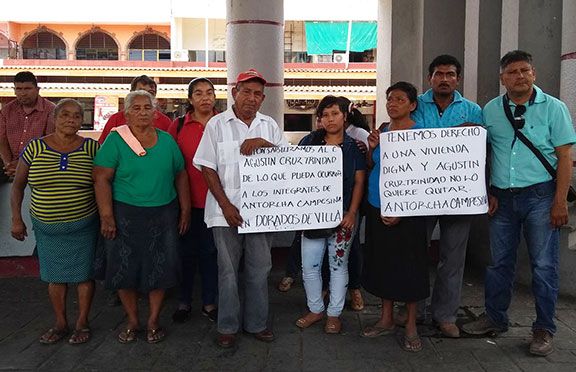 AGUSTIN CRUZ TRINIDAD
DE LO QUE PUEDA OCURRIR
A LOS INTEGRALES DE
ANTORCHA CAMPESINA
EN DORADOS DE VILLA
TENEMOS DERECHO
A UNA VIVIENDA
DIGNA Y AGUSTIN
CRUZ TRINIDAD NO LO
QUIERE QUITAR.
ANTORCHA CAMPESINA